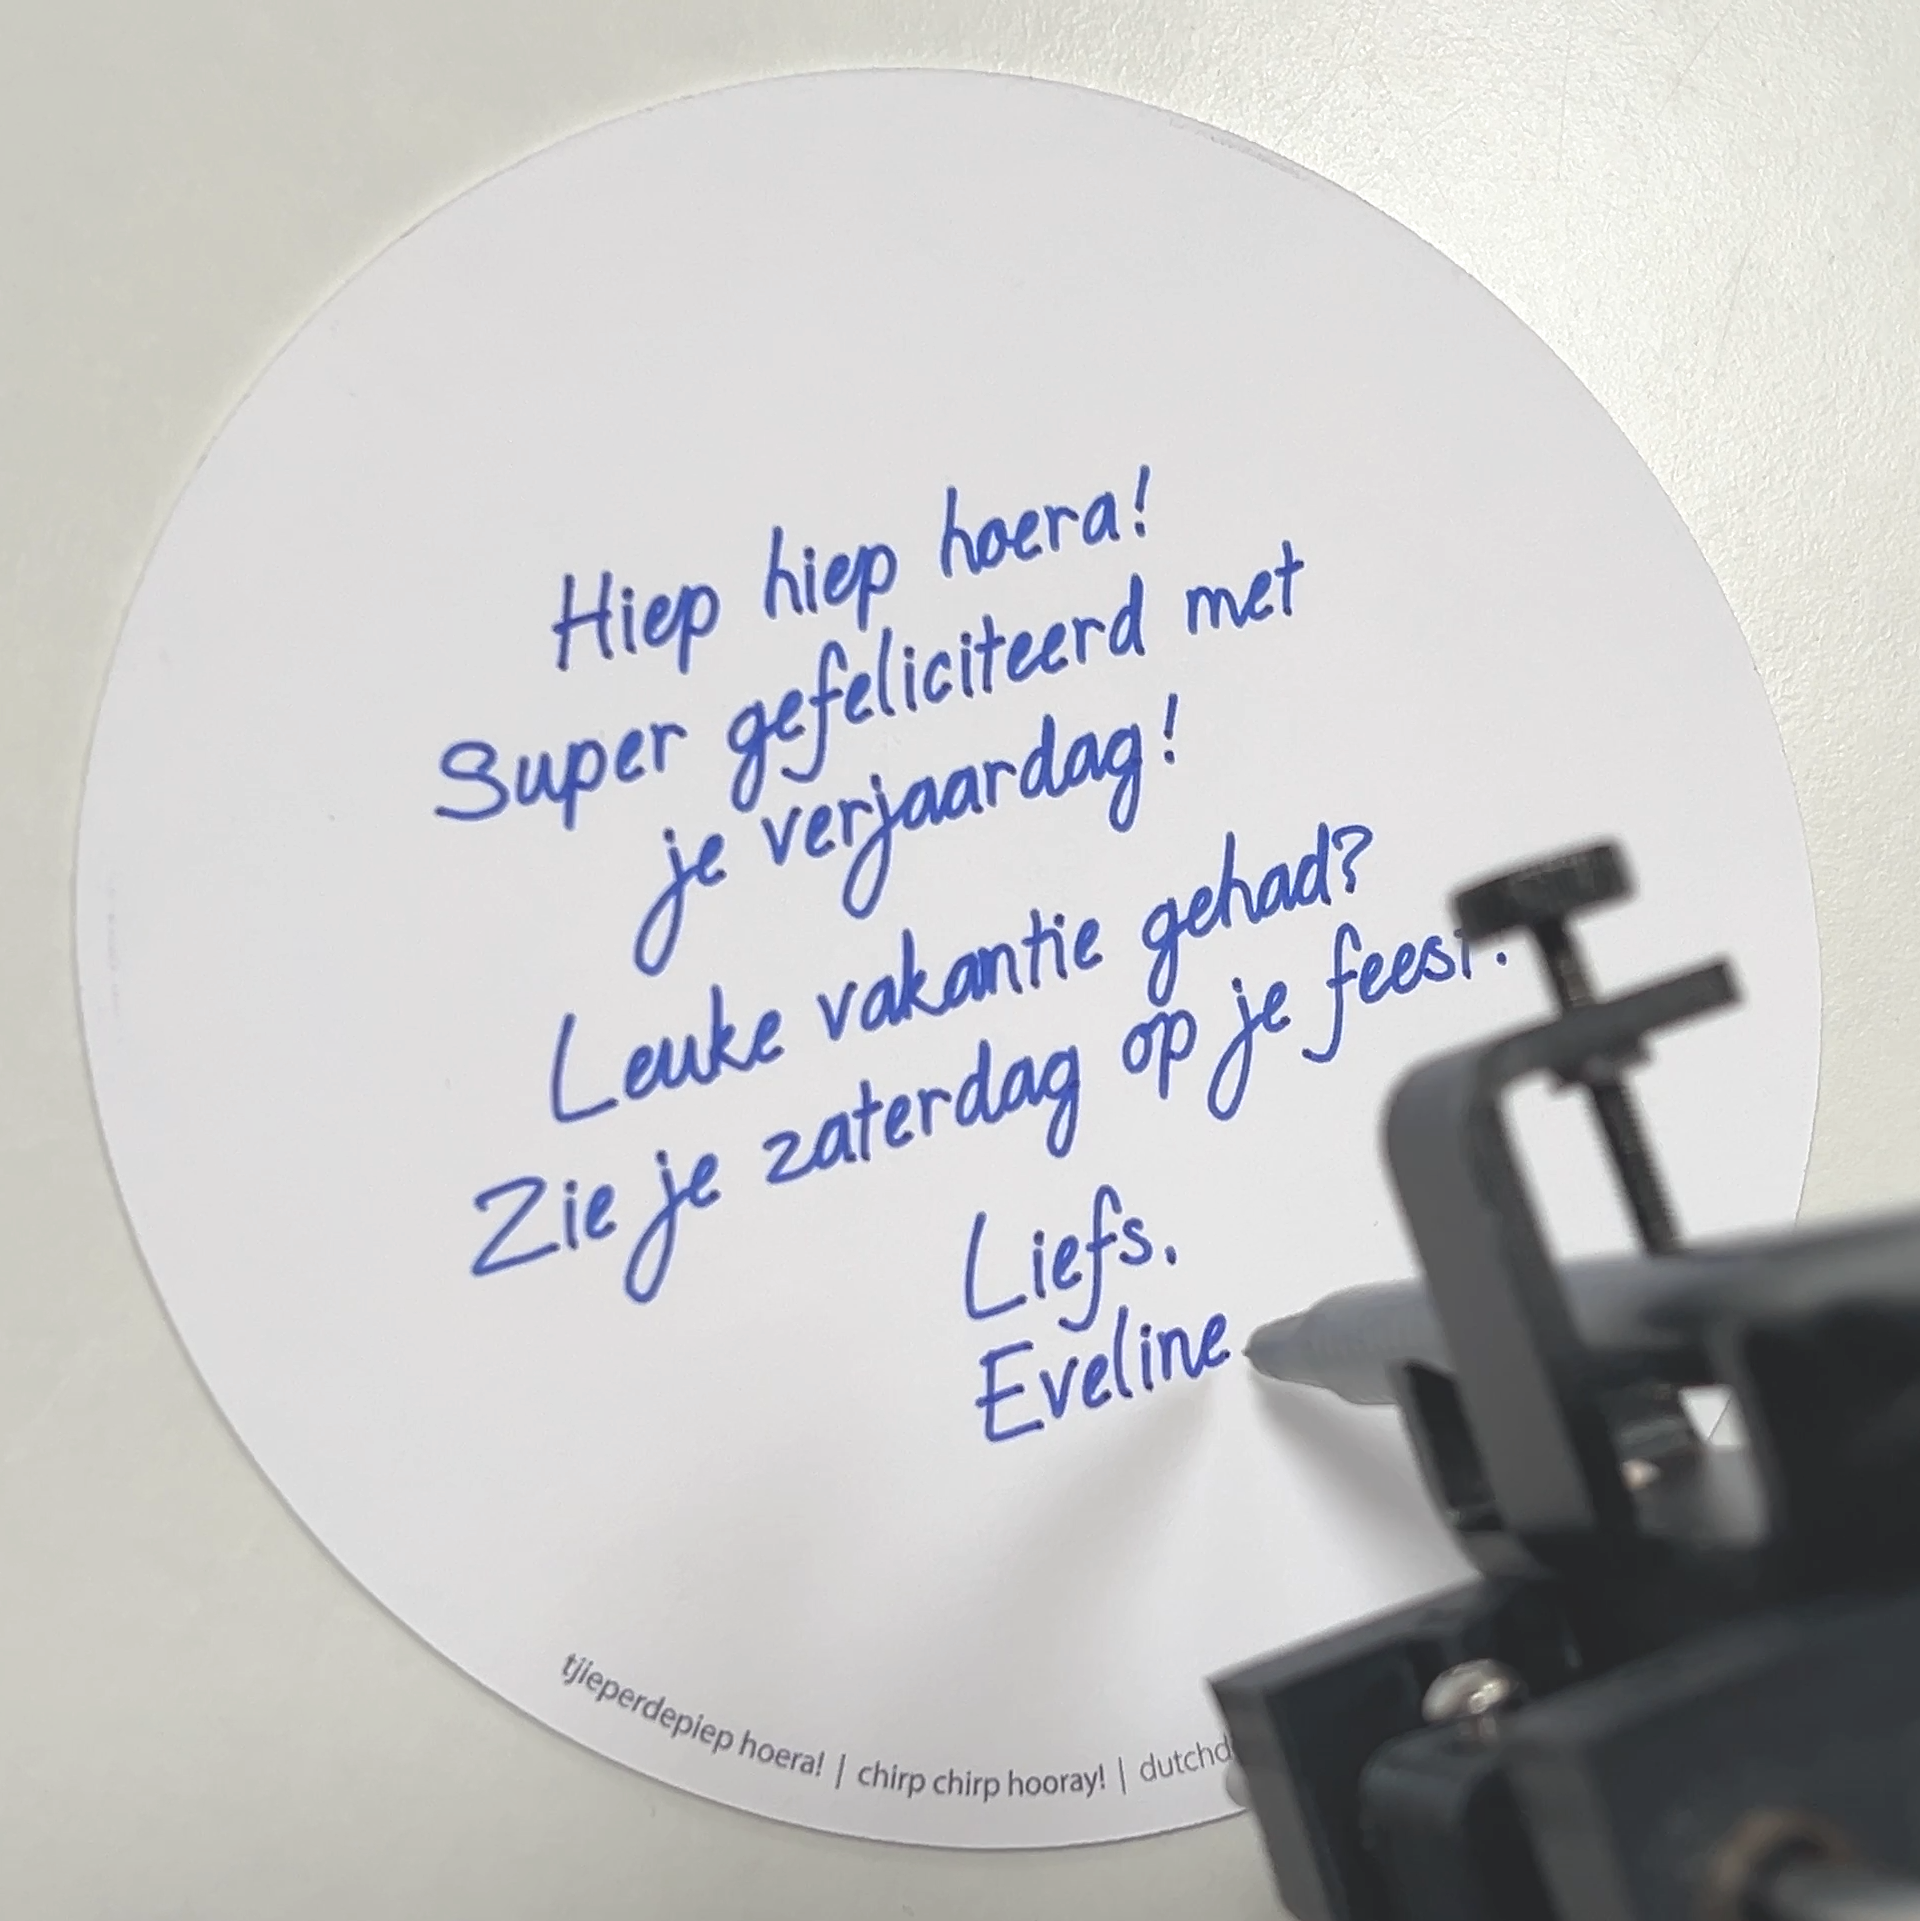 Hiep hiep hoera!
Super gefeliciteerd met
je verjaardag!
Leuke vakantie gehad?
Zie je zaterdag op je feest.
Liefs.
Eveline
tjieperdepiep hoera! | chirp chirp hooray! |